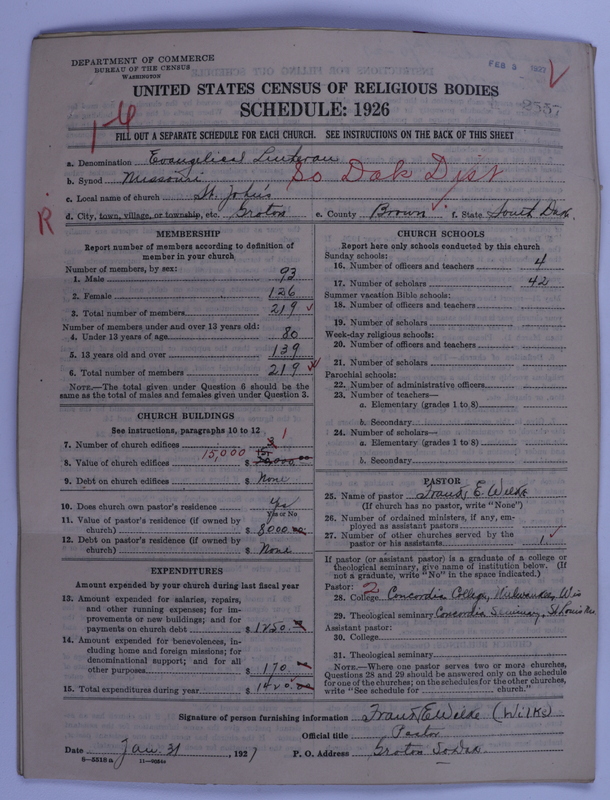 DEPARTMENT OF COMMERCE
BUREAU OF THE CENSUS
WASHINGTON
FEB 9 1927
UNITED STATES CENSUS OF RELIGIOUS BODIES
SCHEDULE: 1926
2557
1-4
FILL OUT A SEPARATE SCHEDULE FOR EACH CHURCH. SEE INSTRUCTIONS ON THE BACK OF THIS SHEET
a. Denomination Evangelical Lutheran
b. Synod Missouri So Dak Dist
c. Local name of church St. John's
R
d. City, town, village, or township, etc. Groton e. County Brown f. State South Dak.
MEMBERSHIP
Report number of members according to definition of member in your church
Number of members, by sex:
1. Male 93
2. Female 126
3. Total number of members 219
Number of members under and over 13 years old:
4. Under 13 years of age 80
5. 13 years old and over 139
6. Total number of members 219
NOTE.—The total given under Question 6 should be the same as the total of males and females given under Question 3.
CHURCH BUILDINGS
See instructions, paragraphs 10 to 12
7. Number of church edifices 1
8. Value of church edifices 15,000 $
9. Debt on church edifices $ None
10. Does church own pastor's residence Yes
Yes or No
11. Value of pastor's residence (if owned by church) $ 8000.00
12. Debt on pastor's residence (if owned by church) $ None
EXPENDITURES
Amount expended by your church during last fiscal year
13. Amount expended for salaries, repairs, and other running expenses; for improvements or new buildings; and for payments on church debt $ 1250.
14. Amount expended for benevolences, including home and foreign missions; for denominational support; and for all other purposes $ 170.
15. Total expenditures during year $ 1420.
CHURCH SCHOOLS
Report here only schools conducted by this church
Sunday schools:
16. Number of officers and teachers 4
17. Number of scholars 42
Summer vacation Bible schools:
18. Number of officers and teachers
19. Number of scholars
Week-day religious schools:
20. Number of officers and teachers
21. Number of scholars
Parochial schools:
22. Number of administrative officers
23. Number of teachers—
a. Elementary (grades 1 to 8)
b. Secondary
24. Number of scholars—
a. Elementary (grades 1 to 8)
b. Secondary
PASTOR
25. Name of pastor Frank E. Welke
(If church has no pastor, write "None")
26. Number of ordained ministers, if any, employed as assistant pastors
27. Number of other churches served by the pastor or his assistants 1
If pastor (or assistant pastor) is a graduate of a college or theological seminary, give name of institution below. (If not a graduate, write "No" in the space indicated.)
Pastor: 2
28. College Concordia College, Milwaukee, Wis
29. Theological seminary Concordia Seminary, St Louis Mo
Assistant pastor:
30. College
31. Theological seminary
NOTE.—Where one pastor serves two or more churches, Questions 28 and 29 should be answered only on the schedule for one of the churches; on the schedules for the other churches, write "See schedule for church."
Signature of person furnishing information Frank E Welke (Wilks)
Official title Pastor
Date Jan. 31, 1927 P. O. Address Groton So Dak
8—5515 a 11—9034a